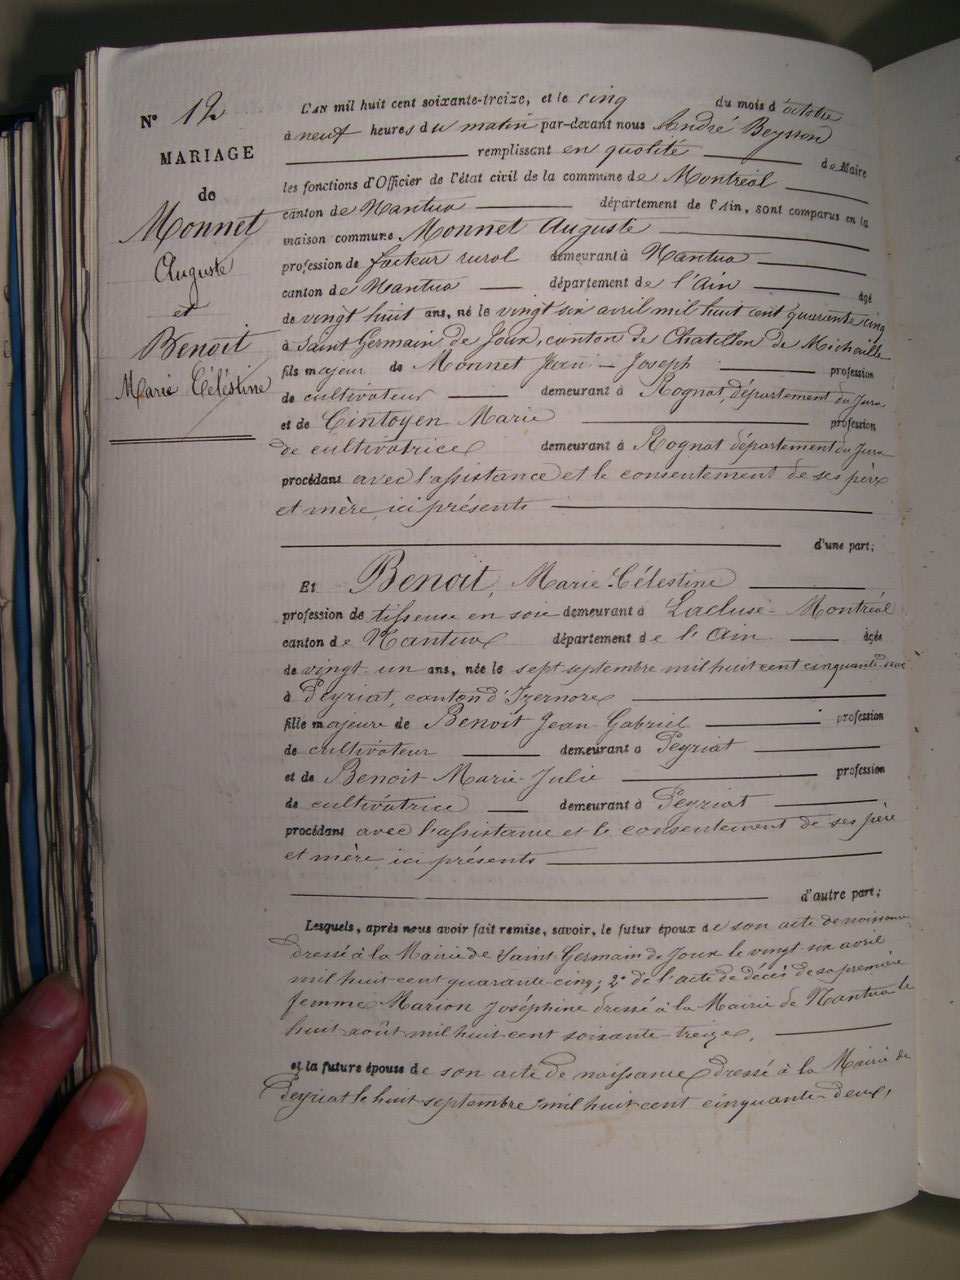 N° 12
MARIAGE
de
Monnet
Auguste
et
Benoit
Marie Célestine
L'AN mil huit cent soixante-treize, et le cinq du mois d'octobre
à neuf heures du matin par-devant nous André Beysson
remplissant en qualité de Maire
les fonctions d'Officier de l'état civil de la commune de Montréal
canton de Nantua département de l'Ain, sont comparus en la
maison commune Monnet Auguste
profession de facteur rural demeurant à Nantua
canton de Nantua département de l'Ain âgé
de vingt huit ans, né le vingt six avril mil huit cent quarante cinq
à Saint Germain de Joux, canton de Chatillon de Michaille
fils majeur de Monnet Jean-Joseph profession
de cultivateur demeurant à Rognat, département du Jura
et de Cintoyen Marie profession
de cultivatrice demeurant à Rognat département du Jura
procédant avec l'assistance et le consentement de ses père
et mère ici présents
d'une part;
Et Benoit, Marie-Célestine
profession de tisseuse en soie demeurant à Lacluse-Montréal
canton de Nantua département de l'Ain âgée
de vingt un ans, née le sept septembre mil huit cent cinquante deux
à Peyriat, canton d'Izernore
fille majeure de Benoit Jean-Gabriel profession
de cultivateur demeurant à Peyriat
et de Benoit Marie-Julie profession
de cultivatrice demeurant à Peyriat
procédant avec l'assistance et le consentement de ses père
et mère ici présents
d'autre part;
Lesquels, après nous avoir fait remise, savoir, le futur époux de son acte de naissance
dressé à la Mairie de Saint Germain de Joux le vingt six avril
mil huit cent quarante cinq; 2° de l'acte de décès de sa première
femme Marion Joséphine dressé à la Mairie de Nantua le
huit août mil huit cent soixante-treize,
et la future épouse de son acte de naissance dressé à la Mairie de
Peyriat le huit septembre mil huit cent cinquante-deux,